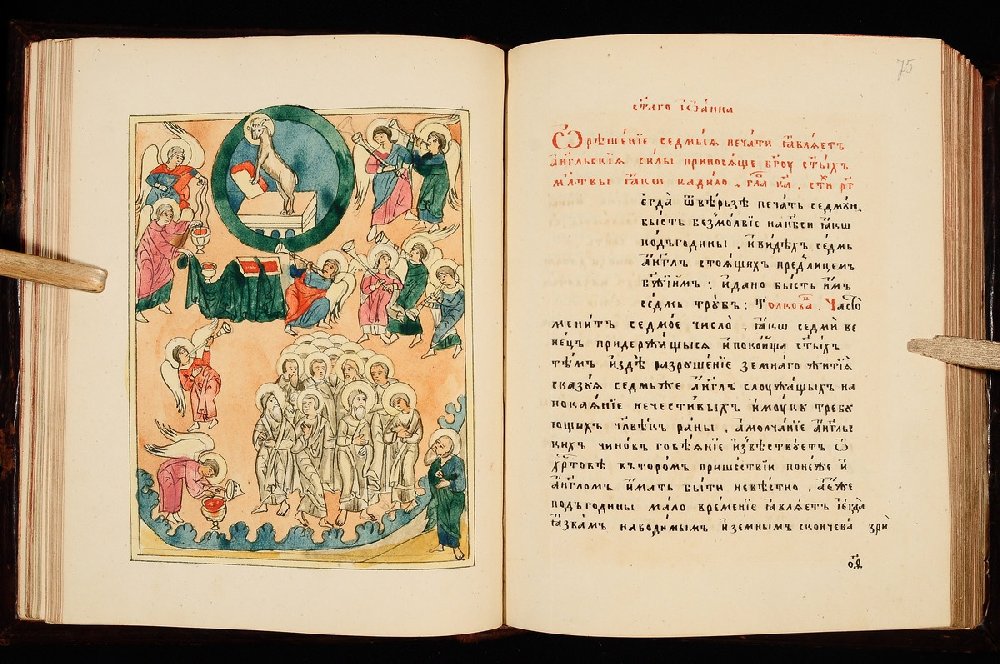 75
ст҃а́го іѡа́нна
Ѿрѣше́нїе седмы́ѧ печа́ти ꙗ҆влѧ́етъ
а҆́нгльскїѧ си́лы приносѧ́ще бг҃ꙋ ст҃ы́хъ
мл҃твы ꙗ҆́кѡ кади́ло
егда̀ ѿве́рзе печа́ть седмꙋ́ю
бы́сть безмо́лвїе на нб҃си ꙗ҆́кѡ
по́лъгодины . и҆ ви́дѣхъ се́дмь
а҆́нгл҃ъ стоѧ́щихъ предлице́мъ
бж҃їимъ : и҆ дано̀ бы́сть и҆̀мъ
се́дмь трꙋ́бъ : Толкова . Ча́сто
мени́тъ седмо́е число̀ . ꙗ҆́кѡ седмѝ ве
придержа́щыѧсѧ и҆ поко́ища ст҃ы́хъ
тѣ́мъ и҆ здѣ̀ разрꙋше́нїе земна́го жи́тїѧ
ска́зꙋѧ седмь́же а҆́нгл҃ъ слꙋжа́щыхъ на
покаѧ́нїе нечести́выхъ и҆ мо́укꙋ требꙋ
ющыхъ чл҃вѣкъ ра́ны . а҆ молча́нїе а҆́нгльс
кихъ чино́въ говѣ́ѧнїе и҆звѣ́ствꙋетъ ѡ
хр҃то́вѣ вто́ромъ прише́ствїи поне́же и҆
а҆́нгло́мъ и҆́мать бы́ти невѣ́стно . а҆ є҆́же
полъгоди́ны ма́ло вре́менїе ꙗ҆влѧ́етъ є҆гда̀
ꙗ҆́звамъ наводи́мымъ и҆ земны́мъ сконче́ва зрѝ